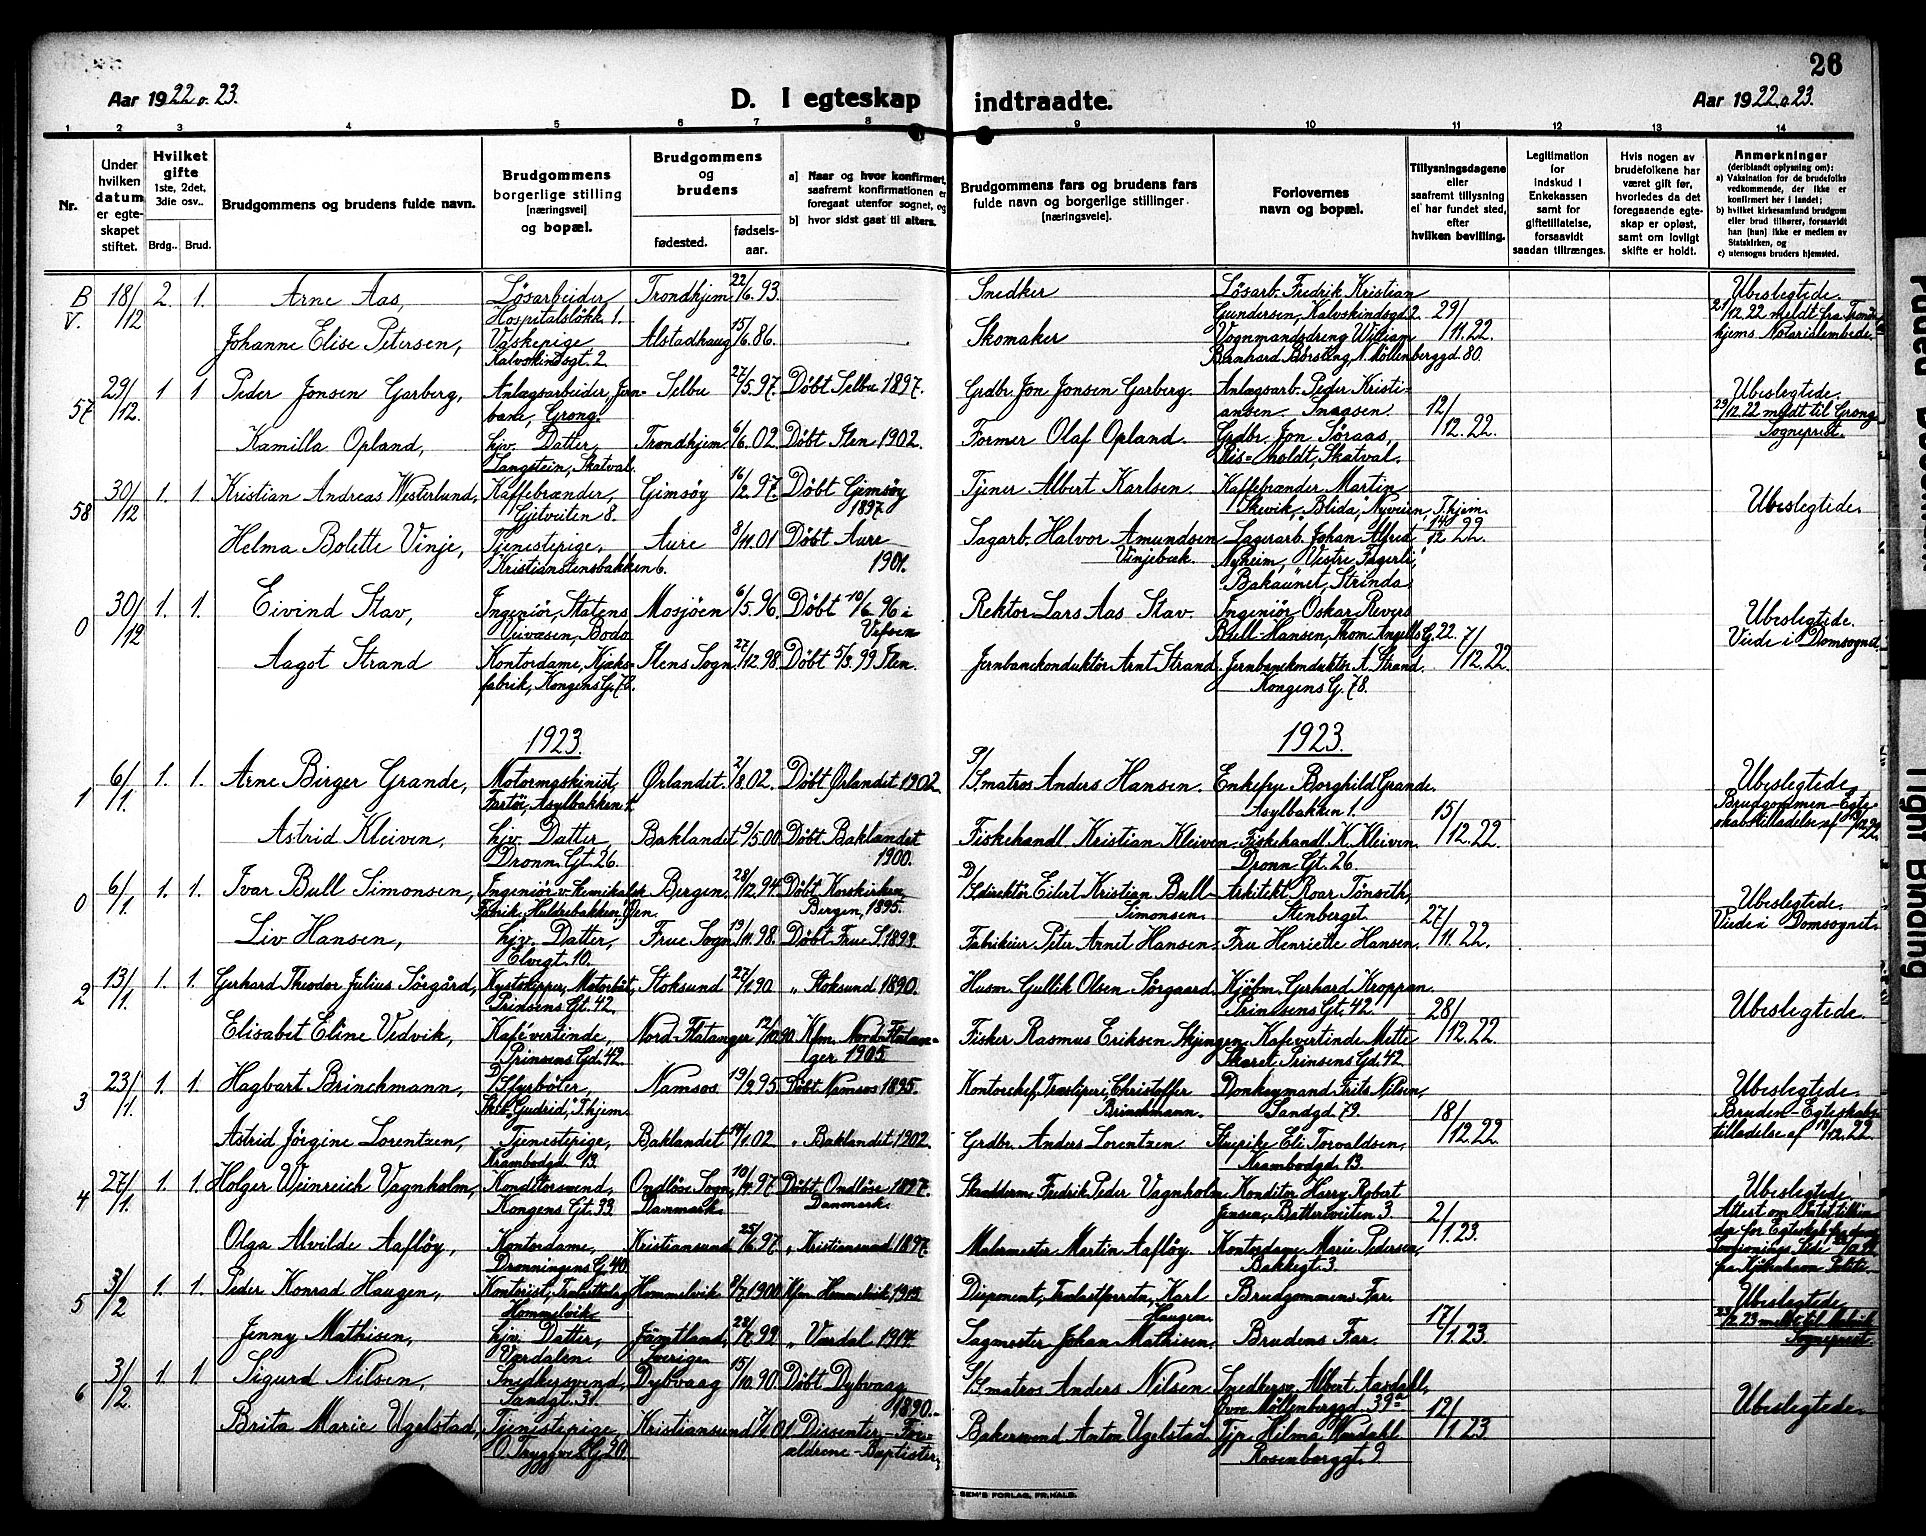 26
Aar 1922 o. 23.
D. I egteskap indtraadte.
Aar 1922 o 23.
1 2 3 4 5 6 7 8 9 10 11 12 13 14
Nr.
Under hvilken datum er egteskapet stiftet.
Hvilket gifte 1ste, 2det, 3die osv..
Brdg.. Brud.
Brudgommens og brudens fulde navn.
Brudgommens borgerlige stilling [næringsvei] og bopæl.
Brudgommens og brudens
fødested. fødselsaar.
a] Naar og hvor konfirmert, saafremt konfirmationen er foregaat utenfor sognet, og
b] hvor sidst gaat til alters.
Brudgommens fars og brudens fars fulde navn og borgerlige stillinger [næringsveie].
Forlovernes navn og bopæl.
Tillysningsdagene eller saafremt tillysning ei har fundet sted, efter hvilken bevilling.
Legitimation for indskud i Enkekassen samt for giftetillatelse, forsaavidt saadan tiltrænges.
Hvis nogen av brudefolkene har været gift før, hvorledes da det foregaaende egteskap er opløst, samt om lovlig skifte er holdt.
Anmerkninger (deriblandt oplysning om):
a) Vaksination for de brudefolks vedkommende, der ikke er konfirmert her i landet;
b) hvilket kirkesamfund brudgom eller brud tilhører, forsaavidt han [hun] ikke er medlem av Statskirken, og
c) utensogns bruders hjemsted.
B V. 18/12 2. 1. Arne Aas, Løsarbeider, Hospitalsløkk. 1. Trondhjem 22/6.93. Snedker Løsarb. Fredrik Kristian Gundersen, Kalvskindsgd 2. 29/11.22. Ubeslegtede. 21/12.22 meldt fra Trondhjems Notarialembede.
Johanne Elise Petersen, Vaskepige, Kalvskindsgt. 2 Alstadhaug 15/6.86. Skomaker Vognmandsdreng William Bernhard Børsting, N. Møllenberggd. 80.
57 29/12. 1 1 Peder Jonsen Garberg, Anlægsarbeider, Jernbane, Grong. Selbu 27/5.97. Døbt Selbu 1897. Grdbr. Jon Jonsen Garberg. Anlægsarb. Peder Kristiansen. Snaasen. 12/12.22. Ubeslegtede. 29/12.22 meldt til Grong Sogneprest.
Kamilla Opland, hjv. Datter, Langstein, Skatval. Trondhjem 6/6.02. Døbt Ilen 1902. Former Olaf Opland. Grdbr. Jon Søraas, Skatval.
58 30/12 1. 1. Kristian Andreas Westerlund, Kaffebrænder, Gjetveiten 8. Gimsøy 16/2.97. Døbt Gimsøy 1897 Tjener Albert Karlsen. Kaffebrænder Martin Skevik, "Blida", Nyveien, T.hjem. 14/12 22. Ubeslegtede.
Helma Bolette Vinje, Tjenestepige, Kristianstensbakken 6. Aure 8/11.01 Døbt Aure 1901. Sagarb. Halvor Amundsen Vinjebæk. Lagerarb. Johan Alfred Nyheim, "Vestre Fagerli", Bakaunet, Strinda
0 30/12 1. 1. Eivind Stav, Ingeniør, Statens Veivæsen, Bodø Mosjøen 6/5.96. Døbt 10/6.96 i Vefsen Rektor Lars Aas Stav. Ingeniør Oskar Revers Bull-Hansen, Thom. Angells G. 22. 7/12.22. Ubeslegtede. Viede i Domsognet.
Aagot Strand Kontordame, Kjeksfabrik, Kongens G. 78. Ilens Sogn. 27/12.98. Døbt 5/3.99 Ilen. Jernbanekonduktør Arnt Strand. Jernbanekonduktør A. Strand. Kongens G. 78.
1923. 1923.
1 6/1. 1. 1. Arne Birger Grande, Motormaskinist, Fartøi, Asylbakken 1. Ørlandet. 2/8.02. Døbt Ørlandet 1902 S/Smatros Anders Hansen. Enkefru Borghild Grande. Asylbakken 1. 15/12.22. Ubeslegtede. Brudgommen Egteskabstilladelse af 13/12.22.
Astrid Kleiven, hjv. Datter, Dronn. Gt. 26. Baklandet 9/5.00 Døbt Baklandet 1900. Fiskehandl. Kristian Kleiven. Fiskehandl. K. Kleiven. Dronn. Gt. 26
0 6/1. 1. 1. Ivar Bull Simonsen, Ingeniør v. kemikalsk Fabrik, Huldrebakken, Ilen. Bergen. 28/12.94. Døbt Korskirken Bergen, 1895. D/Sdirektør Eilert Kristian Bull-Simonsen. Arkitekt Roar Tønseth, Stenberget. 27/11.22. Ubeslegtede. Viede i Domsognet.
Liv Hansen, hjv. Datter, Elvegt. 10. Frue Sogn 19/11.98. Døbt Frue S. 1899. Fabrikeier Peter Arnet Hansen. Fru Henriette Hansen.
2 13/1. 1. 1. Gerhard Theodor Julius Sørgård, Kystskipper, Motorbåt, Prinsens Gt. 42. Stoksund 27/1.90 " Stoksund 1890. Husm. Gullik Olsen Sørgaard. Kjøbm. Gerhard Kroppan. Prinsens Gt. 42. 28/12.22. Ubeslegtede.
Elisabet Eline Vedvik, Kaféværtinde, Prinsens Gd. 42. Nord-Flatanger 12/10.90. Kfm. Nord-Flatanger 1905 Fisker Rasmus Eriksen Skjingen Kafeværtinde Mette Skaret Prinsens Gd. 42.
3 23/1. 1. 1. Hagbart Brinchmann, D/S fyrbøter, Skib "Gudrid", T.hjem. Namsos 19/2.95. Døbt Namsos 1895. Kontorchef, Træsliperi, Christoffer Brinchmann. Donkeymand Frits Nilsen, Sandgd. 79. 18/12.22 Ubeslegtede. Bruden Egteskabstilladelse af 18/12.22
Astrid Jørgine Lorentzen, Tjenestepige, Krambodgd. 13. Baklandet 14/1.02 " Baklandet 1902. Grdbr. Anders Lorentzen Strepike Eli Torvaldsen, Krambodgd. 13.
4 27/1. 1. 1. Holger Weinreich Vagnholm, Konditorsvend, Kongens Gt. 33. Ondløse Sogn, Danmark. 10/4.97. Døbt Ondløse 1897. Danmark. Fredrik Peder Vagnholm Konditor Harry Robert Jensen, Batteriveiten 3. 2/1.23. Ubeslegtede.
Olga Alvilde Aafløy, Kontordame, Dronningens G. 40. Kristiansund 25/6.97. " Kristiansund 1897. Malermester Martin Aafløy. Kontordame Marie Pedersen, Bakkegt. 3.
5 3/2 1. 1. Peder Konrad Haugen, Kontorist, Hommelvik Hommelvik 8/7.1900 Kfm. Hommelvik 1915 Disponent, Karl Haugen. Brudgommens Far. 17/1.23. Ubeslegtede. Sogneprest.
Jenny Mathisen, hjv. Datter, Værdalen. Jämtland, Sverige. 22/7.99 " Værdal 1914. Sagmester Johan Mathisen, Brudens Far.
6 3/2. 1. 1. Sigurd Nilsen, Snedkersvend, Sandgt. 31. Dybvaag 15/10.90. Døbt Dybvaag 1890. S/Smatros Anders Nilsen Snedkersv. Albert Aasdahl, Øvre Møllenberggd. 39a 12/1.23 Ubeslegtede.
Brita Marie Ugelstad, Tjenestepige, O. Tryggves. G. 20. Kristiansund Dissenter, Forældrene Baptister. Bakersvend Anton Ugelstad. Tjp. Hilma Værdahl Rosenborggt. 9.
SEM'S FORLAG, FR.HALD.
Tight Binding